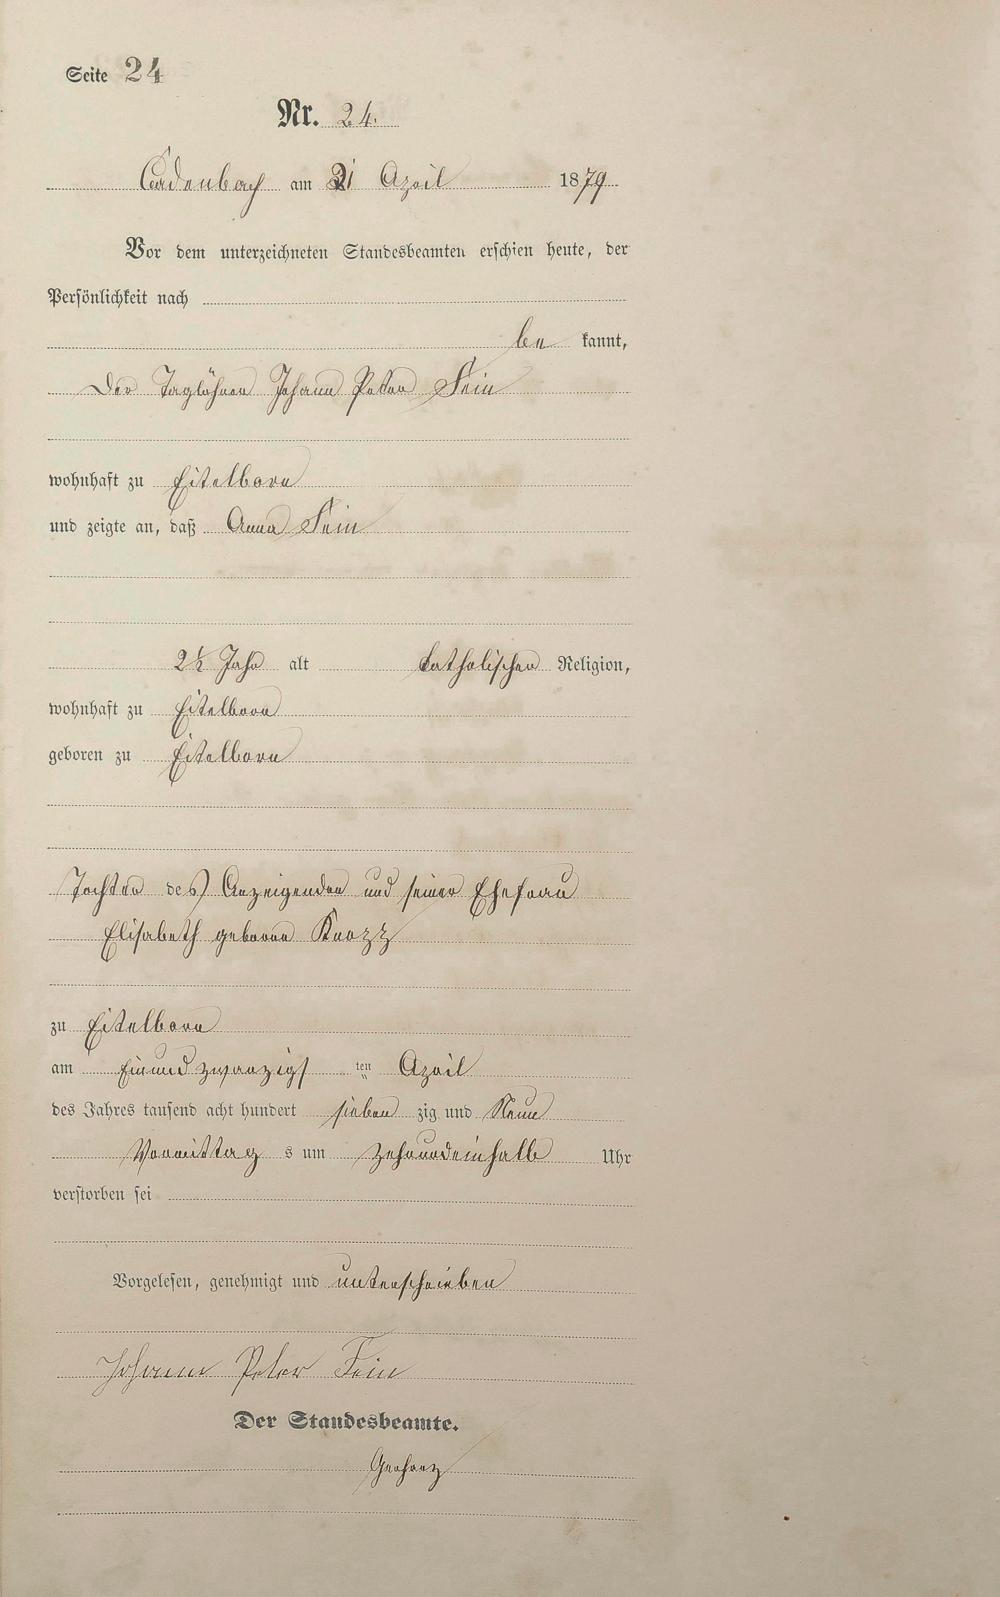 Seite 24
Nr. 24.
Cadenbach am 21 April 1879
Vor dem unterzeichneten Standesbeamten erschien heute, der
Persönlichkeit nach
be kannt,
Der Taglöhner Johann Peter Fein
wohnhaft zu Eitelborn
und zeigte an, daß Anna Fein
2½ Jahr alt katholischer Religion,
wohnhaft zu Eitelborn
geboren zu Eitelborn
Tochter des Anzeigenden und seiner Ehefrau
Elisabeth geborne
zu Eitelborn
am Einundzwanzigs ten April
des Jahres tausend acht hundert sieben zig und Neun
Vormittag s um Zehnundeinhalb Uhr
verstorben sei
Vorgelesen, genehmigt und unterschrieben
Johann Peter Fein
Der Standesbeamte.
Gerharz